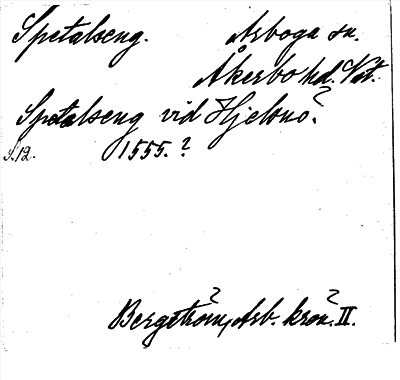 Spetalseng. Arboga sn.
Åkerbo hd. Vstm.
Spetalseng vid Hjelmsö?
S. 12. 1555.?
Bergström, Arb. krön. II.